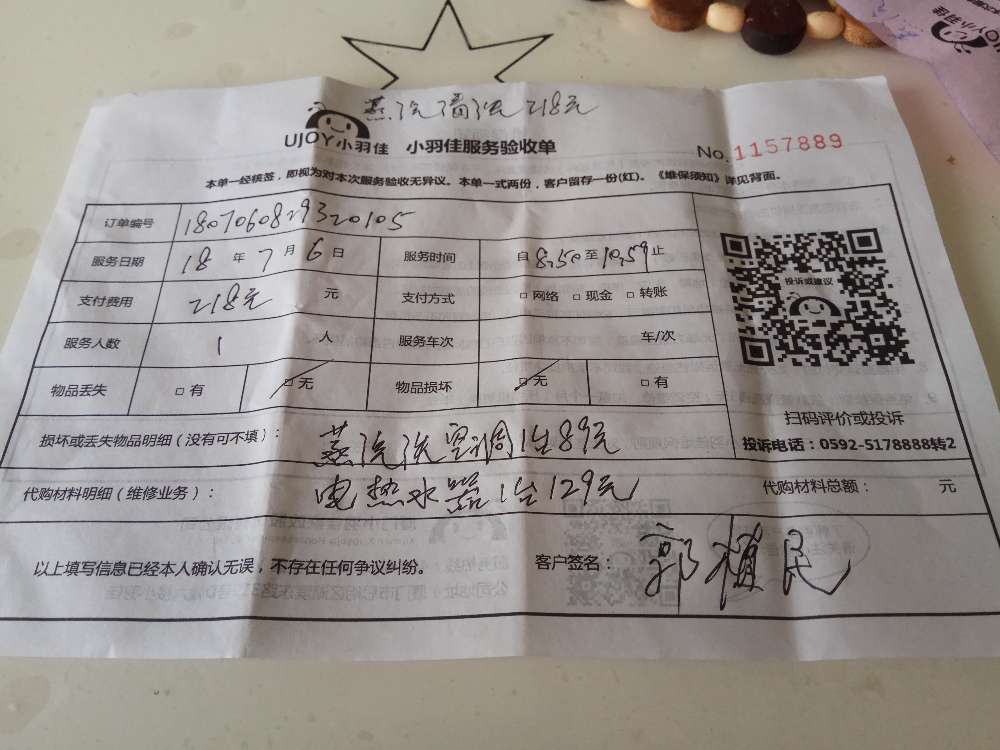 蒸汽清洗218元
UJOY小羽佳 小羽佳服务验收单 No.1157889
本单一经核签，即视为对本次服务验收无异议。本单一式两份，客户留存一份(红)。《维保须知》详见背面。
订单编号 180706082932​0105
服务日期 18 年 7 月 6 日 服务时间 自 8,50 至 10,59 止
支付费用 218元 元 支付方式 □ 网络 □ 现金 □ 转账
服务人数 1 人 服务车次 车/次
物品丢失 □ 有 □ 无 物品损坏 □ 无 □ 有
投诉或建议
扫码评价或投诉
投诉电话：0592-5178888转2
损坏或丢失物品明细（没有可不填）： 蒸汽洗空调1台89元
代购材料明细（维修业务）： 电热水器1台129元 代购材料总额： 元
以上填写信息已经本人确认无误，不存在任何争议纠纷。 客户签名： 郭植民
UJOY小羽佳